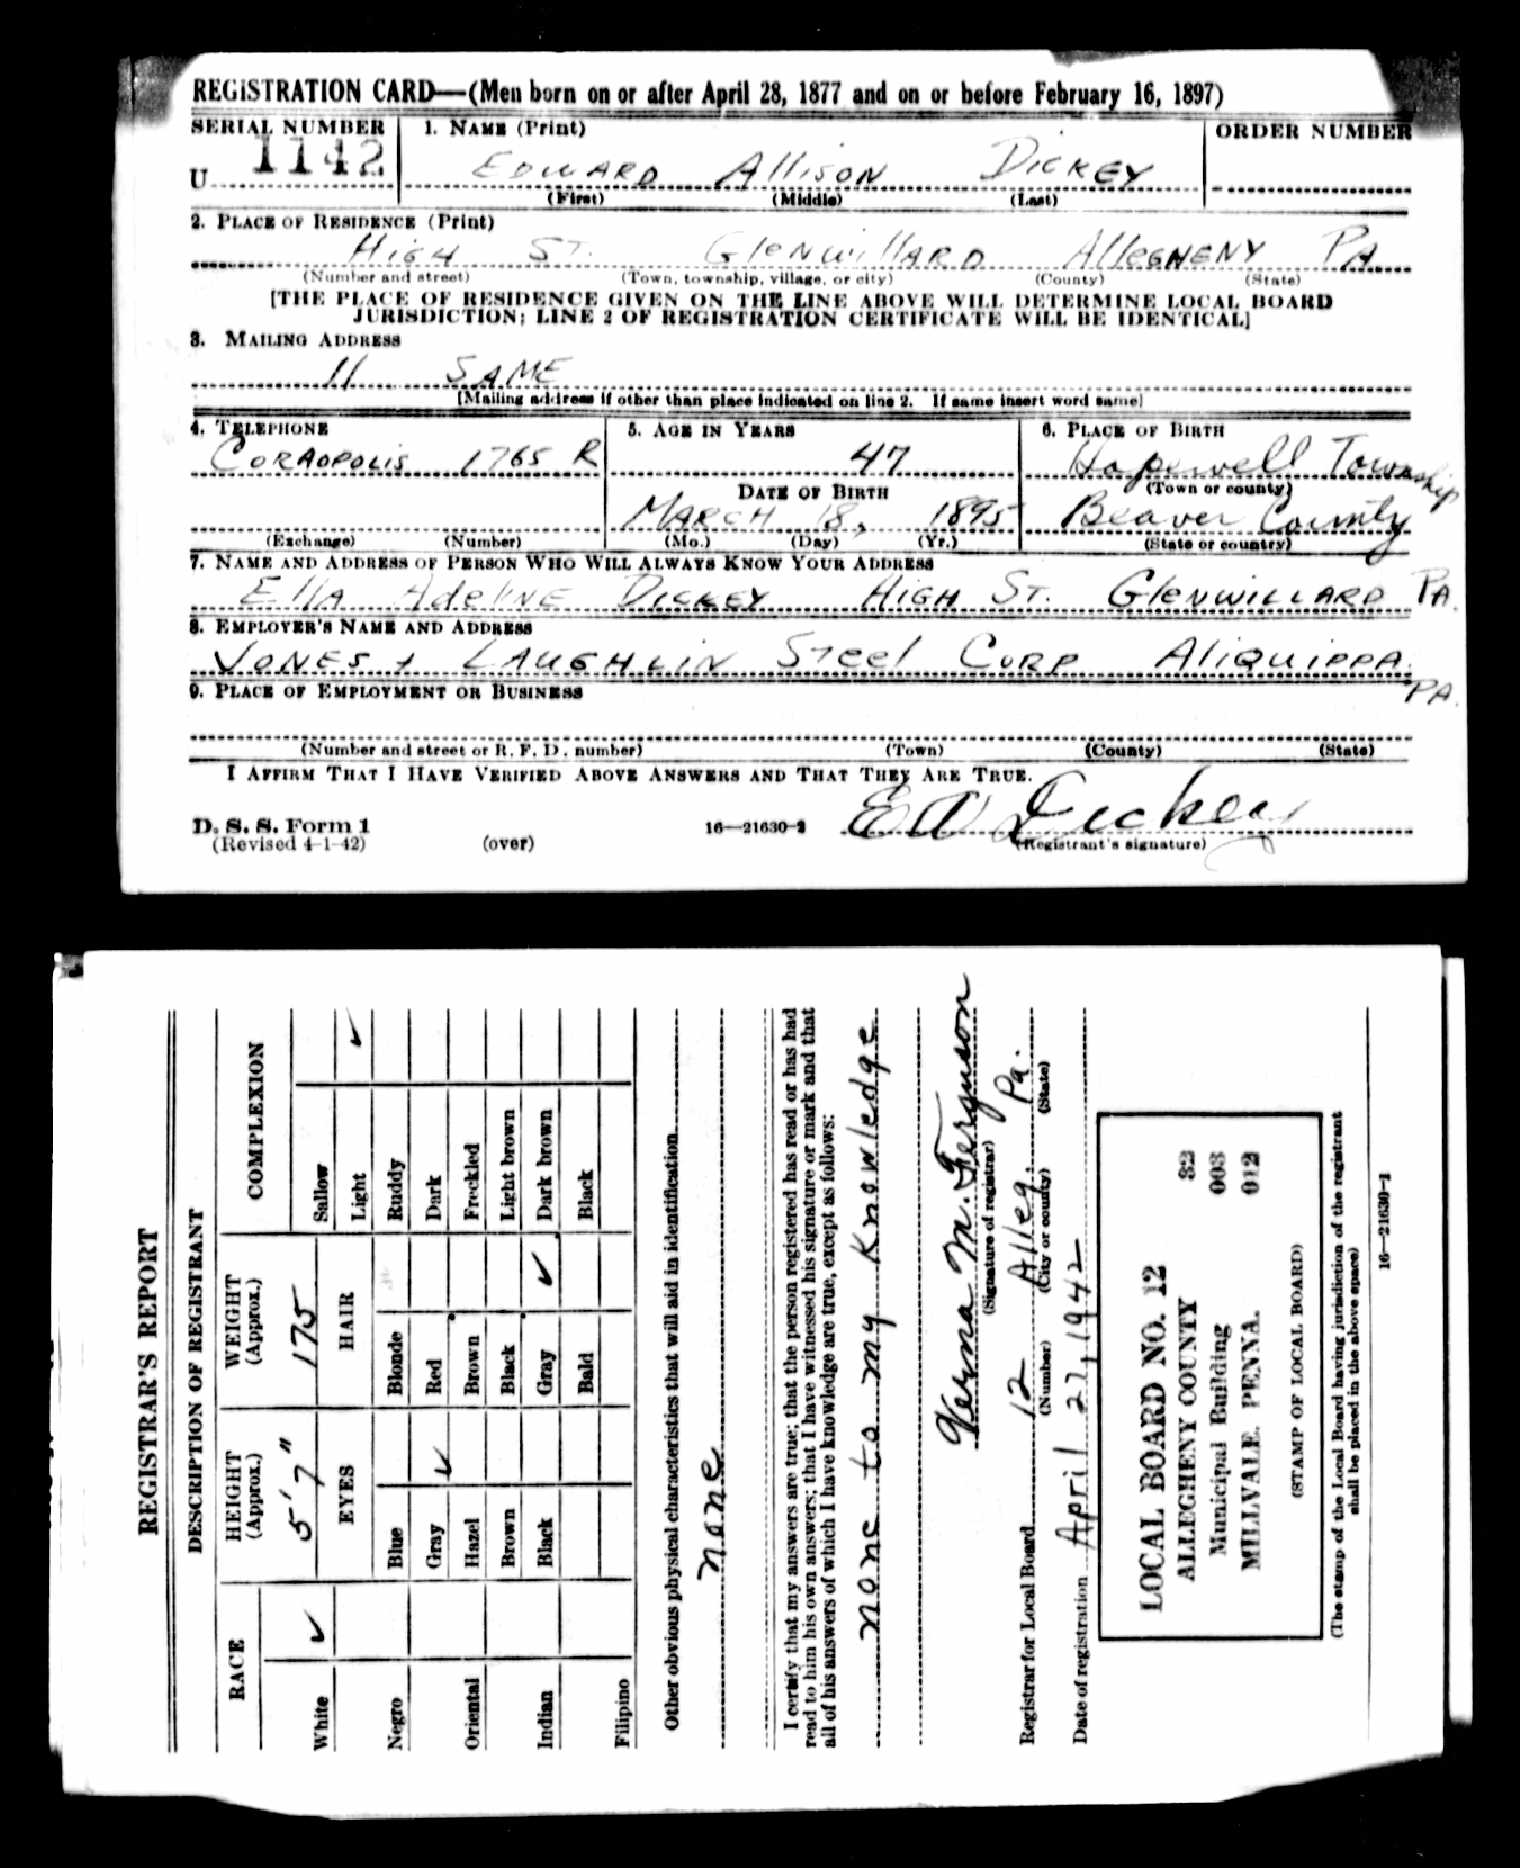 REGISTRATION CARD—(Men born on or after April 28, 1877 and on or before February 16, 1897)
SERIAL NUMBER 1. NAME (Print) ORDER NUMBER
U 1142 EDWARD Allison DICKEY
(First) (Middle) (Last)
2. PLACE OF RESIDENCE (Print)
HIGH ST. GleNWillARD AlleGHENY PA
(Number and street) (Town, township, village, or city) (County) (State)
[THE PLACE OF RESIDENCE GIVEN ON THE LINE ABOVE WILL DETERMINE LOCAL BOARD
JURISDICTION; LINE 2 OF REGISTRATION CERTIFICATE WILL BE IDENTICAL]
3. MAILING ADDRESS
11 SAME
[Mailing address if other than place indicated on line 2. If same insert word same]
4. TELEPHONE 5. AGE IN YEARS 6. PLACE OF BIRTH
CORAOPOLIS 1765 R 47 Hopewell Township
(Town or county)
DATE OF BIRTH
MARCH 18, 1895 Beaver County
(Exchange) (Number) (Mo.) (Day) (Yr.) (State or country)
7. NAME AND ADDRESS OF PERSON WHO WILL ALWAYS KNOW YOUR ADDRESS
EllA AdelINE DICKEY HIGH ST. GleNWILLARD PA.
8. EMPLOYER'S NAME AND ADDRESS
JONES + LAUGHLIN STeel CORP AliQUIPPA.
PA.
9. PLACE OF EMPLOYMENT OR BUSINESS
(Number and street or R. F. D. number) (Town) (County) (State)
I AFFIRM THAT I HAVE VERIFIED ABOVE ANSWERS AND THAT THEY ARE TRUE.
E A Dickey
D. S. S. Form 1 16—21630-2
(Revised 4-1-42) (over) (Registrant's signature)
REGISTRAR'S REPORT
DESCRIPTION OF REGISTRANT
RACE HEIGHT (Approx.) WEIGHT (Approx.) COMPLEXION
5' 7" 175
White ✓ EYES HAIR Sallow
Light ✓
Negro Blue Blonde Ruddy
Gray ✓ Red Dark
Oriental Hazel Brown Freckled
Brown Black Light brown
Indian Black Gray ✓ Dark brown
Bald Black
Filipino
Other obvious physical characteristics that will aid in identification
none
I certify that my answers are true; that the person registered has read or has had
read to him his own answers; that I have witnessed his signature or mark and that
all of his answers of which I have knowledge are true, except as follows:
none to my knowledge
Verna M. Ferguson
(Signature of registrar)
Registrar for Local Board 12 Alleg. Pa.
(Number) (City or county) (State)
Date of registration April 27, 1942
LOCAL BOARD NO. 12 32
ALLEGHENY COUNTY 003
Municipal Building 012
MILLVALE, PENNA.
(STAMP OF LOCAL BOARD)
(The stamp of the Local Board having jurisdiction of the registrant
shall be placed in the above space)
16—21630-1